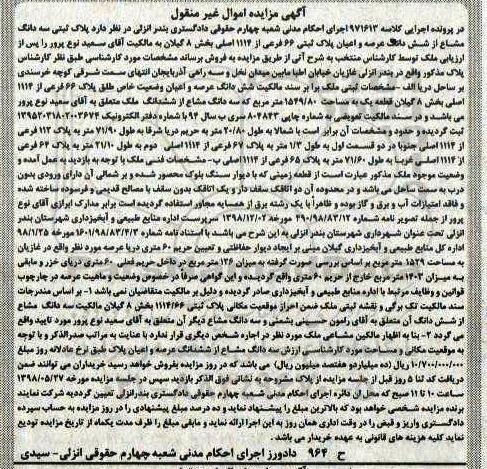 آگهی مزایده اموال غیر منقول
در پرونده اجرایی کلاسه ۹۷۱۶۱۳ اجرای احکام مدنی شعبه چهارم حقوقی دادگستری بندر انزلی در نظر دارد پلاک ثبتی سه دانگ
مشاع از شش دانگ عرصه و اعیان پلاک ثبتی ۶۶ فرعی از ۱۱۱۴ اصلی بخش ۸ گیلان به مالکیت آقای سعید نوع پرور را پس از
ارزیابی ملک توسط کارشناس منتخب به شرح آتی از طریق مزایده به فروش برساند مشخصات مورد کارشناسی طبق نظر کارشناس
پلاک مذکور واقع در بندر انزلی غازیان خیابان اطبا مابین میدان نخل و سه راهی آذربایجان انتهای سمت شرقی کوچه خرسندی
بر ساحل دریا الف - مشخصات ثبتی ملک برابر سند مالکیت شش دانگ عرصه و اعیان وضعیت خاص طلق پلاک ۶۶ فرعی از ۱۱۱۴
اصلی بخش ۸ گیلان قطعه یک به مساحت ۱۵۴۹/۸۰ متر مربع که سه دانگ مشاع از ششدانگ ملک متعلق به آقای سعید نوع پرور
می باشد و در سند مالکیت تعویضی به شماره چاپی ۸۰۴۸۴۳ سری ب سال ۹۴ با شماره دفتر الکترونیک ۱۳۹۵۲۰۳۱۸۰۲۰۰۳۶۷۴
ثبت گردیده و حدود و مشخصات آن برابر است با شمالا به طول ۲۰/۸۰ متر به حریم دریا شرقا به طول ۷۱/۹۰ متر به پلاک ۱۱۳ فرعی
از ۱۱۱۴ اصلی جنوبا در دو قسمت اول به طول ۱/۳ متر به پلاک ۶۷ فرعی از ۱۱۱۴ اصلی دوم - به طول ۲۱/۰۰ متر به پلاک ۶۴ فرعی
از ۱۱۱۴ اصلی غربا به طول ۷۱/۶۰ متر به پلاک ۶۵ فرعی از ۱۱۱۴ اصلی ب- مشخصات فنی ملک با توجه به بازدید به عمل آمده و
وضعیت موجود ملک مذکور عبارت است از قطعه زمینی که با دیوار سنگ بلوک محصور شده و بر شمالی آن دارای ورودی بدون
درب به سمت ساحل می باشد و در محدوده آن دو اتاقک سقف دار و یک اتاقک بدون سقف با مصالح قدیمی و فرسوده ساخته شده
و فاقد امتیازات آب و برق و گاز بوده و ظاهرا با یک رشته برق از همسایه مجاور استفاده گردیده است برابر مدارک ابرازی آقای نوع
پرور از جمله تصویر نامه شماره ۳۹۰/۹۸/۸۳/۱۲ مورخه ۱۳۹۸/۱۲/۰۲ سرپرست اداره منابع طبیعی و آبخیزداری شهرستان بندر
انزلی تحت عنوان شهرداری شهرستان بندر انزلی به این شرح می باشد: با استناد نامه شماره ۱۶۰۱/۹۸/۸۳/۴/۳ مورخه ۹۸/۱/۲۵
اداره کل منابع طبیعی و آبخیزداری گیلان مبنی بر ایجاد دیوار حفاظتی و تعیین حریم ۶۰ متری دریا عرصه مورد نظر واقع در غازیان
به مساحت ۱۵۲۹ متر مربع بر اساس بررسی صورت گرفته به میزان ۱۲۶ متر مربع در داخل حریم فعلی ۶۰ متری دریای خزر و مابقی
به میزان ۱۴۰۳ متر مربع خارج از حریم ۶۰ متری واقع گردیده و این گواهی صرفاً در خصوص وضعیت و ماهیت عرصه در چارچوب
قوانین و وظایف مرتبط با اداره منابع طبیعی و آبخیزداری صادر گردیده و دلیل بر مالکیت متقاضیان نمی باشد ۱- بر اساس مندرجات
سند مالکیت تک برگی و نقشه ثبتی ملک ضمن احراز موقعیت مکانی پلاک ثبتی ۱۱۱۴/۶۶ بخش ۸ گیلان مالکیت سه دانگ مشاع
از شش دانگ آن متعلق به آقای رامون حسینی پشمنی و سه دانگ مشاع دیگر آن متعلق به آقای سعید نوع پرور مورد تایید واقع
می گردد ۲- بنا به اظهار مالکین مشاعی ملک مورد نظر در اجاره شخص دیگری قرار ندارد با عنایت به مراتب صدرالذکر و با توجه
به موقعیت مکانی و مساحت مورد کارشناسی ارزش سه دانگ مشاع از ششدانگ عرصه و اعیان پلاک طبق نرخ عادلانه روز مبلغ
۱۰/۷۰۰/۰۰۰/۰۰۰ ریال (ده میلیارد و هفتصد میلیون ریال) می باشد که در روز مزایده بفروش خواهد رسید خریداران می توانند ضمن
دریافت کد ثنا ۵ روز قبل از جلسه مزایده از پلاک مشروحه به نشانی فوق الذکر بازدید سپس در جلسه مزایده مورخه ۱۳۹۸/۰۵/۲۷
ساعت ۱۰ تا ۱۱ صبح که محل آن دائره اجرای احکام مدنی شعبه چهارم حقوقی دادگستری بندر انزلی تعیین گردیده شرکت نمایند
برنده مزایده شخصی خواهد بود که بالاترین مبلغ را پیشنهاد نماید و ده درصد مبلغ پیشنهادی را در روز مزایده به حساب سپرده
دادگستری واریز و قبض را در وقت اداری همان روز به این اجرا ارائه نماید و مابقی مبلغ را ظرف مدت یکماه از تاریخ مزایده تودیع
نماید کلیه هزینه های قانونی به عهده خریدار می باشد.
ح ۹۶۴ دادورز اجرای احکام مدنی شعبه چهارم حقوقی انزلی- سیدی